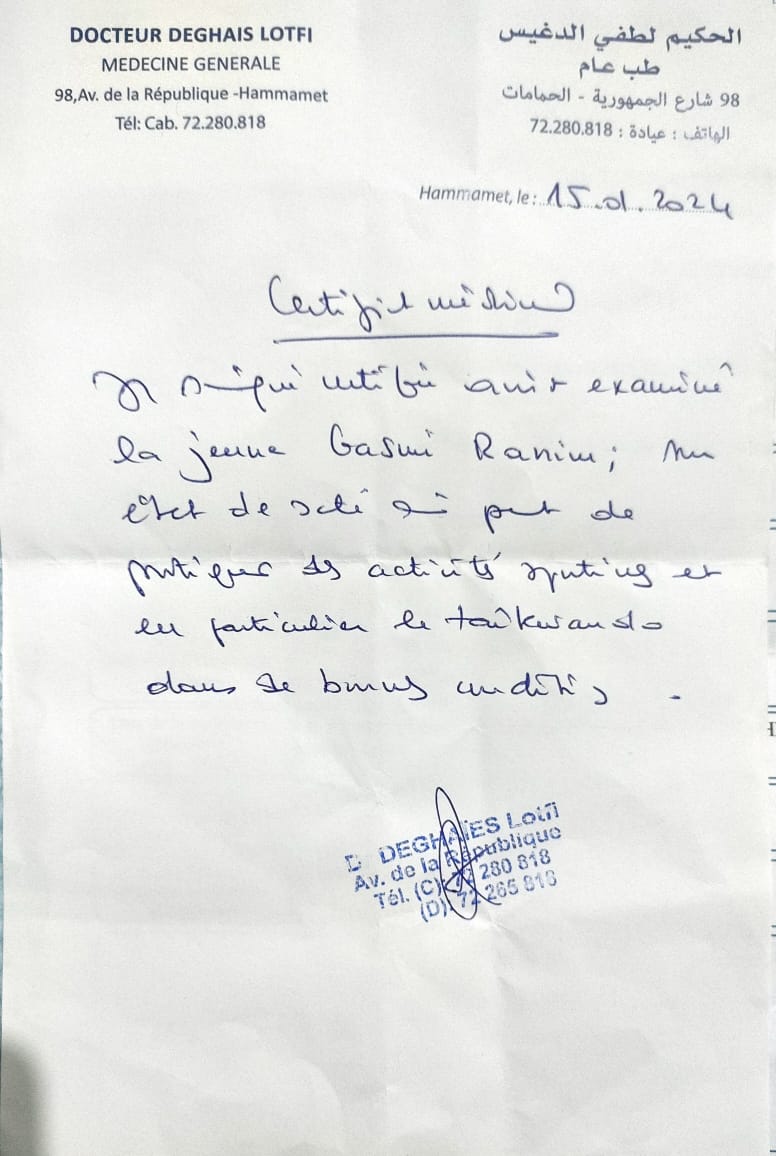 DOCTEUR DEGHAIS LOTFI
MEDECINE GENERALE
98,Av. de la République -Hammamet
Tél: Cab. 72.280.818
الحكيم لطفي الدغيس
طب عام
98 شارع الجمهورية - الحمامات
الهاتف : عيادة : 72.280.818
Hammamet, le : 15.01.2024
Certificat médical
Je soussigné certifie avoir examiné
la jeune Gasmi Ranim ; son
état de santé lui permet de
pratiquer des activités sportives et
en particulier le taikwando
dans de bonnes conditions .
Dr DEGHAIES Lotfi
Av. de la République
Tél. (C): 72 280 818
(D): 72 265 818